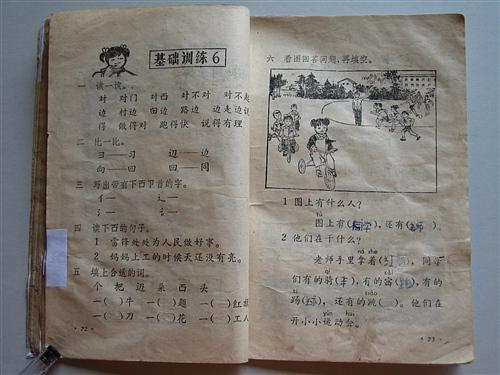 基础训练6
一 读一读。
对 对门 对西 对不对 对不起
边 村边 田边 路边 边走边说
得 做得对 跑得快 说得有理
二 比一比。
ヨ——习 辺——边
向——回 四——同
三 写出带有下面偏旁的字。
亻— 辶—
氵— 讠—
四 读下面的句子。
1 雷锋处处为人民做好事。
2 妈妈上工的时候天还没有亮。
五 填上合适的词。
个 把 迈 朵 西 头
一( )牛 一( )题 一( )红旗
一( )刀 一( )花 一( )工人
·72·
六 看图回答问题,再填空。
1 图上有什么人?
图上有(同学),还有(老师)
2 他们在干什么?
ná zhe
老师手里拿着( ),同学
们有的骑(车),有的 ( ),有的
tī tiào
踢( ),还有的跳( )。他们在
yùn huì
开小小运动会。
·73·